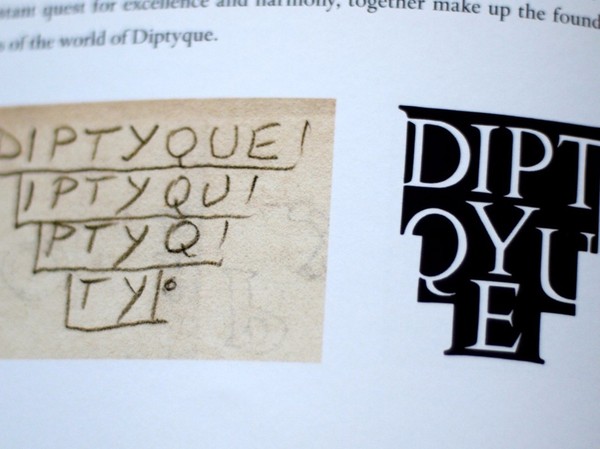 stant quest for excellence and harmony, together make up the found
s of the world of Diptyque.
DIPTYQUE
IPTYQU
PTYQ
TY
DIPT
QYU
E